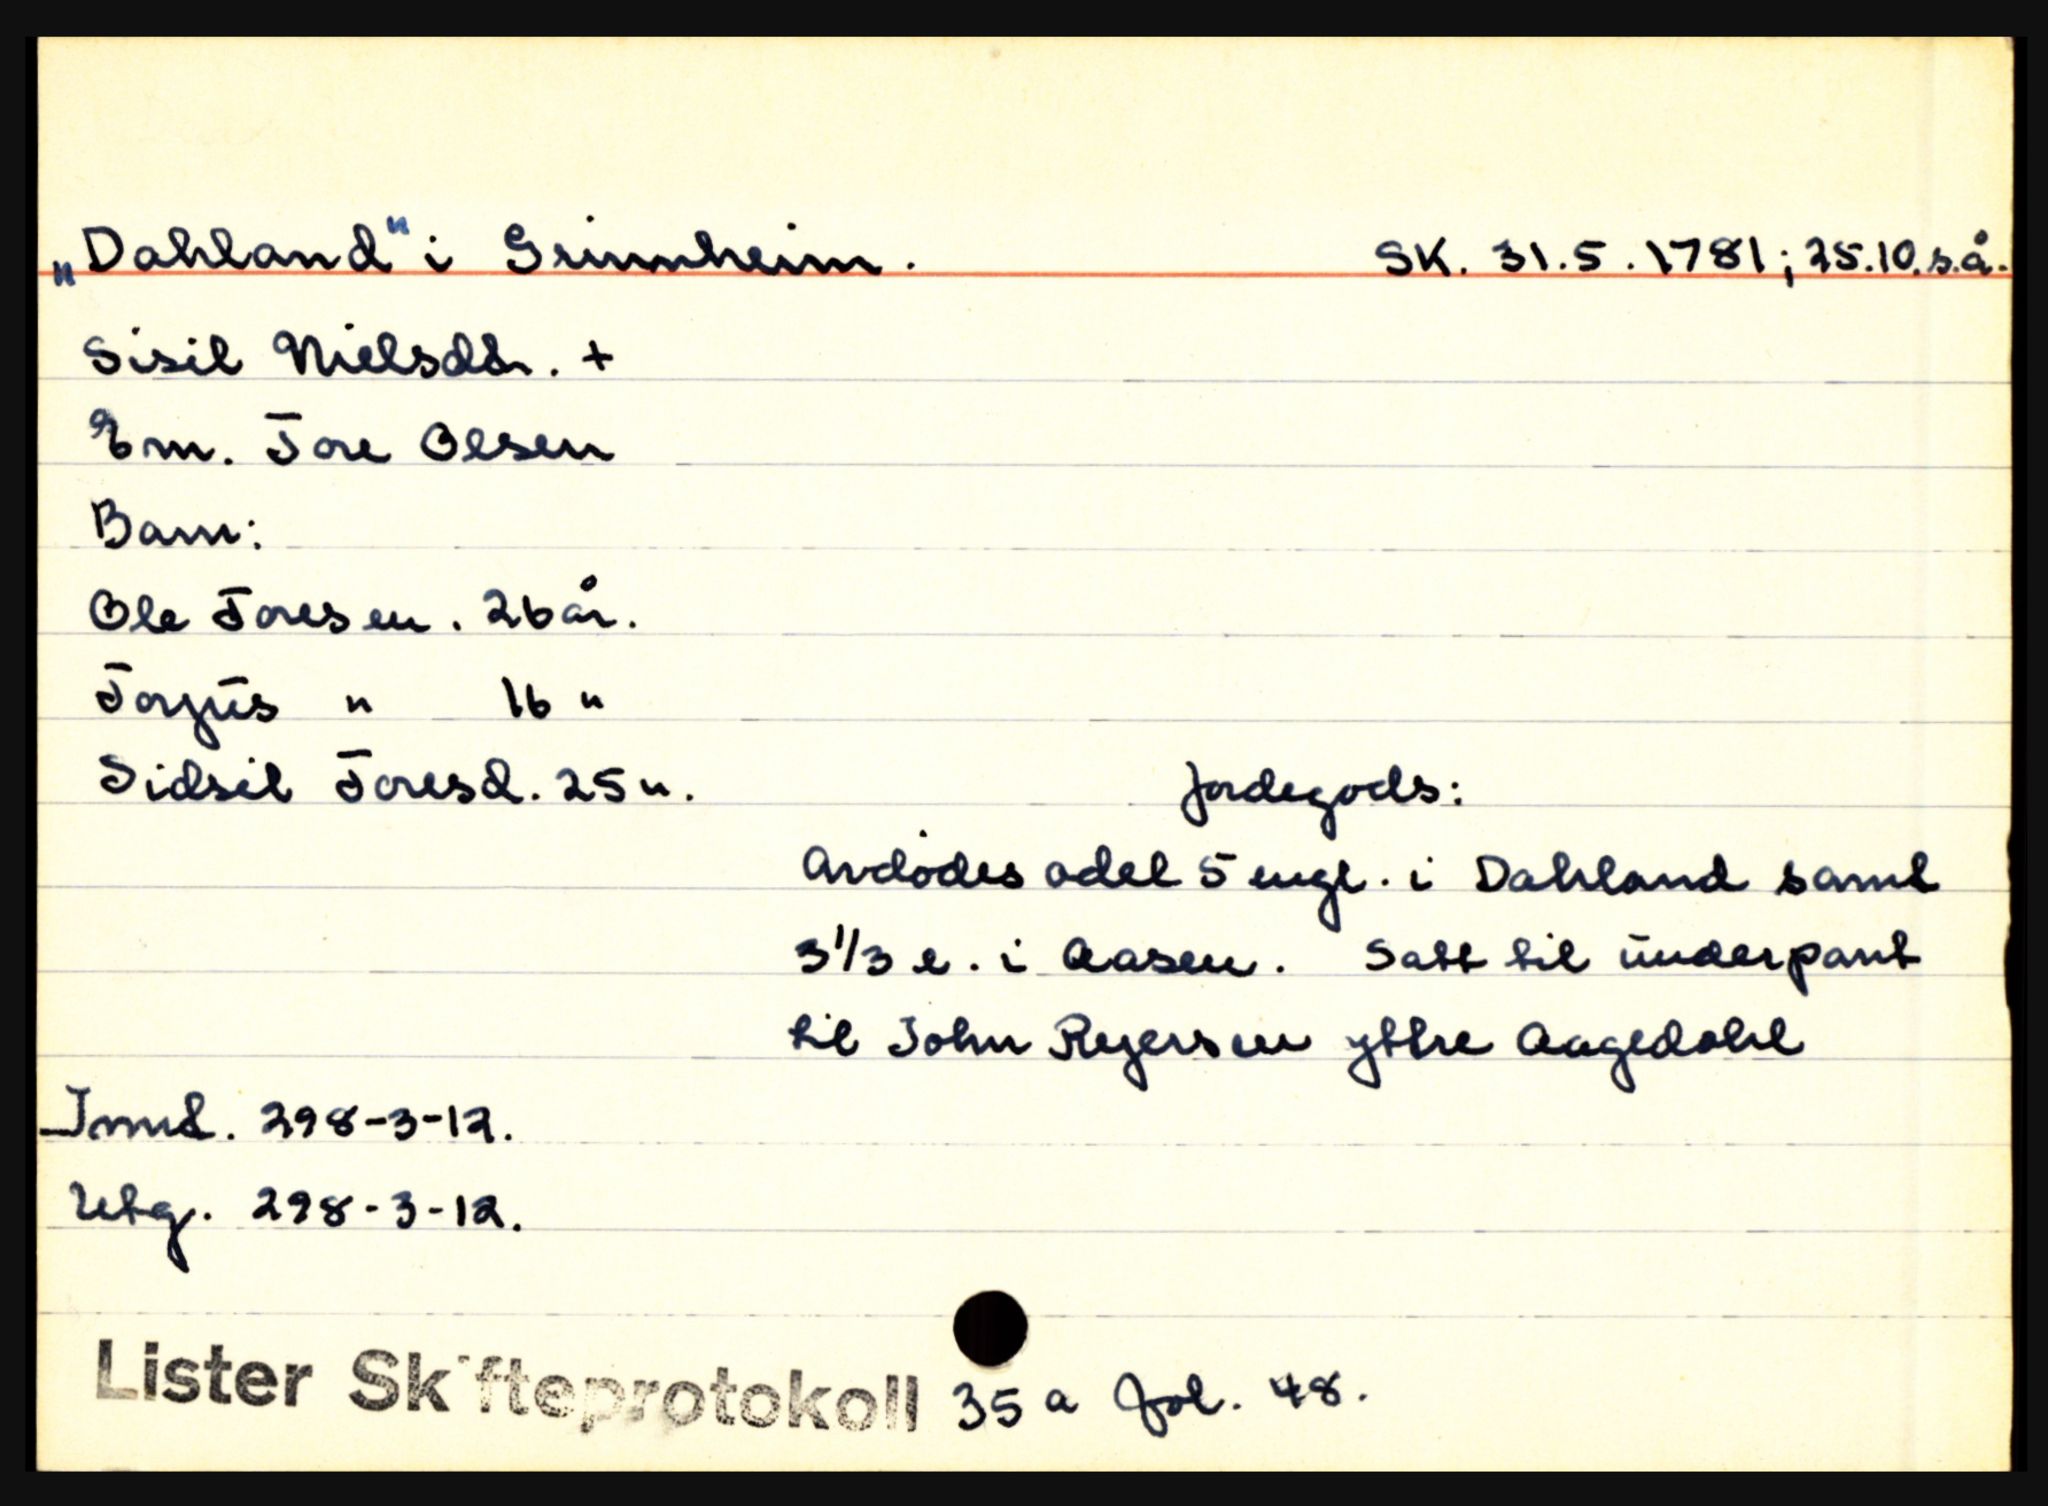 „Dahland" i Grinnheim. SK. 31.5.1781; 25.10. s.å.
Sisil Nielsdtr. +
Em. Tore Olsen
Barn:
Ole Toresen. 26 år.
Torjus " 16 "
Sidsil Toresd. 25 ".
Jordegods:
Avdødes odel 5 engl. i Dahland samt
3 1/3 e. i Aasen. Satt til underpant
til John Reyersen yttre Aagedahl
Innd. 298-3-12.
Utg. 298-3-12.
Lister Skifteprotokoll 35 a fol. 48.